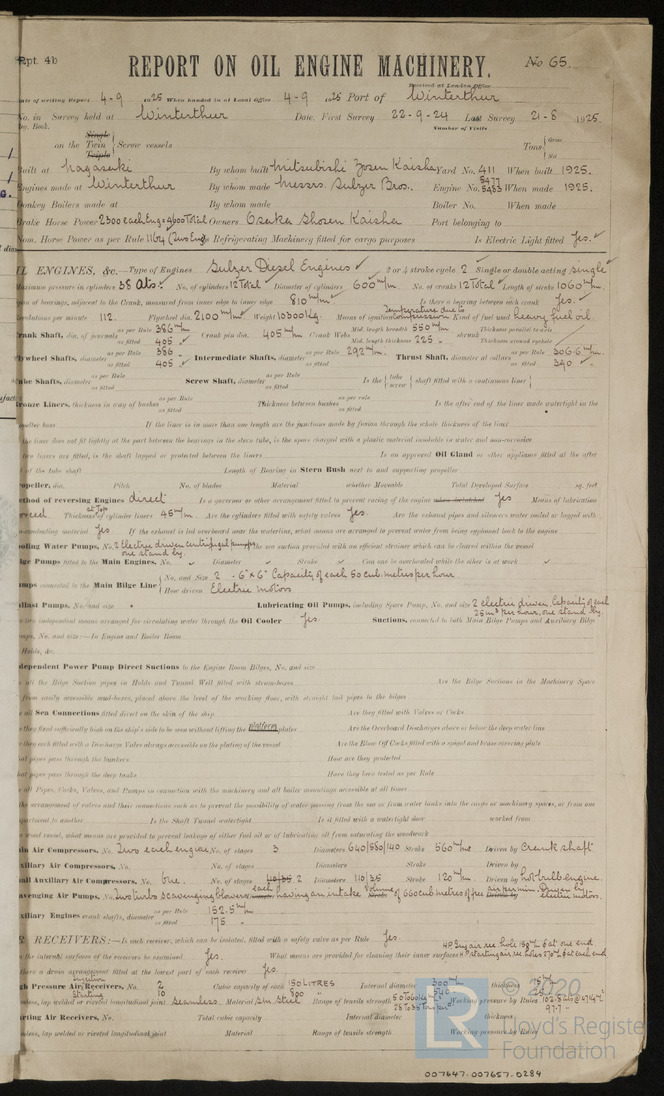 Rpt. 4b
REPORT ON OIL ENGINE MACHINERY.
No 65.
Received at London Office
Date of writing Report 4-9 1925 When handed in at Local Office 4-9 1925 Port of Winterthur
No. in Survey held at Winterthur Date, First Survey 22-9-24 Last Survey 21-8 1925
Reg. Book. Number of Visits
Single
on the Twin Screw vessels Tons Gross
Triple Net
Built at Nagasaki By whom built Mitsubishi Zosen Kaisha Yard No. 411 When built 1925.
Engines made at Winterthur By whom made Messrs. Sulzer Bros. Engine No. 5477 5483 When made 1925.
Donkey Boilers made at By whom made Boiler No. When made
Brake Horse Power 2300 each Eng = 4600 Total Owners Osaka Shosen Kaisha Port belonging to
Nom. Horse Power as per Rule 1164 Refrigerating Machinery fitted for cargo purposes Is Electric Light fitted Yes.
OIL ENGINES, &c.—Type of Engines Sulzer Diesel Engines 2 or 4 stroke cycle 2 Single or double acting single
Maximum pressure in cylinders 38 Ats. No. of cylinders 12 Total Diameter of cylinders 600 m/m No. of cranks 12 Total Length of stroke 1060 m/m.
Span of bearings, adjacent to the Crank, measured from inner edge to inner edge 810 m/m Is there a bearing between each crank Yes.
Revolutions per minute 112. Flywheel dia. 2100 m/m Weight 10300 kg. Means of ignition Temperature due to Compression Kind of fuel used heavy fuel oil.
Crank Shaft, dia. of journals as per Rule 386 m/m as fitted 405 Crank pin dia. 405 m/m Crank Webs Mid. length breadth 550 m/m Mid. length thickness 225 shrunk Thickness parallel to axis Thickness around eyehole
Flywheel Shafts, diameter as per Rule 386 as fitted 405 Intermediate Shafts, diameter as per Rule 292 m/m as fitted Thrust Shaft, diameter at collars as per Rule 306.6 m/m as fitted 390
Tube Shafts, diameter as per Rule as fitted Screw Shaft, diameter as per Rule as fitted Is the tube screw shaft fitted with a continuous liner
Bronze Liners, thickness in way of bushes as per Rule as fitted Thickness between bushes as per rule as fitted Is the after end of the liner made watertight in the
propeller boss If the liner is in more than one length are the junctions made by fusion through the whole thickness of the liner
If the liner does not fit tightly at the part between the bearings in the stern tube, is the space charged with a plastic material insoluble in water and non-corrosive
If two liners are fitted, is the shaft lapped or protected between the liners Is an approved Oil Gland or other appliance fitted at the after
end of the tube shaft Length of Bearing in Stern Bush next to and supporting propeller
Propeller, dia. Pitch No. of blades Material whether Moveable Total Developed Surface sq. feet
Method of reversing Engines direct Is a governor or other arrangement fitted to prevent racing of the engine when declutched Yes Means of lubrication
forced Thickness of cylinder liners at top 45 m/m Are the cylinders fitted with safety valves Yes. Are the exhaust pipes and silencers water cooled or lagged with
non-conducting material Yes If the exhaust is led overboard near the waterline, what means are arranged to prevent water from being syphoned back to the engine
Cooling Water Pumps, No. 2 Electric driven centrifugal pumps one stand by. Is the sea suction provided with an efficient strainer which can be cleared within the vessel
Bilge Pumps fitted to the Main Engines, No. Diameter Stroke Can one be overhauled while the other is at work
Pumps connected to the Main Bilge Line No. and Size 2 - 6" x 6" Capacity of each 50 cub. metres per hour.
How driven Electric motors
Ballast Pumps, No. and size Lubricating Oil Pumps, including Spare Pump, No. and size 2 electric driven, Capacity of each 25 m³ per hour, one stand by.
Are two independent means arranged for circulating water through the Oil Cooler Yes. Suctions, connected to both Main Bilge Pumps and Auxiliary Bilge
Pumps, No. and size:—In Engine and Boiler Room
In Holds, &c.
Independent Power Pump Direct Suctions to the Engine Room Bilges, No. and size
Are all the Bilge Suction pipes in Holds and Tunnel Well fitted with strum-boxes Are the Bilge Suctions in the Machinery Space
led from easily accessible mud-boxes, placed above the level of the working floor, with straight tail pipes to the bilges
Are all Sea Connections fitted direct on the skin of the ship Are they fitted with Valves or Cocks
Are they fixed sufficiently high on the ship's side to be seen without lifting the platform plates Are the Overboard Discharges above or below the deep water line
Are they each fitted with a Discharge Valve always accessible on the plating of the vessel Are the Blow Off Cocks fitted with a spigot and brass covering plate
What pipes pass through the bunkers How are they protected
What pipes pass through the deep tanks Have they been tested as per Rule
Are all Pipes, Cocks, Valves, and Pumps in connection with the machinery and all boiler mountings accessible at all times
Is the arrangement of valves and their connections such as to prevent the possibility of water passing from the sea or from water tanks into the cargo or machinery spaces, or from one
compartment to another Is the Shaft Tunnel watertight Is it fitted with a watertight door worked from
If a wood vessel, what means are provided to prevent leakage of either fuel oil or of lubricating oil from saturating the woodwork
Main Air Compressors, No. Two each engine No. of stages 3 Diameters 640/580/140 Stroke 560 m/m Driven by Crank shaft
Auxiliary Air Compressors, No. No. of stages Diameters Stroke Driven by
Small Auxiliary Air Compressors, No. One. No. of stages 2 Diameters 110/35 Stroke 120 m/m Driven by hot bulb engine.
Scavenging Air Pumps, No. Two turbo scavenging blowers each having an intake volume of 660 cub. metres of free air per min. Driven by electric motors.
Auxiliary Engines crank shafts, diameter as per Rule 152.5 m/m as fitted 175
AIR RECEIVERS:—Is each receiver, which can be isolated, fitted with a safety valve as per Rule Yes
Can the internal surfaces of the receivers be examined Yes. What means are provided for cleaning their inner surfaces
Is there a drain arrangement fitted at the lowest part of each receiver Yes.
High Pressure Air Receivers, No. Injection 2 Starting 10 Cubic capacity of each 150 LITRES 800 Internal diameter 300 m/m thickness
Seamless, lap welded or riveted longitudinal joint Seamless Material S.M. Steel Range of tensile strength Working pressure by Rules
Starting Air Receivers, No. Total cubic capacity Internal diameter thickness
Seamless, lap welded or riveted longitudinal joint Material Range of tensile strength Working pressure by Rules
© 2020
LR
Lloyd's Register
Foundation
007647-007657-0284